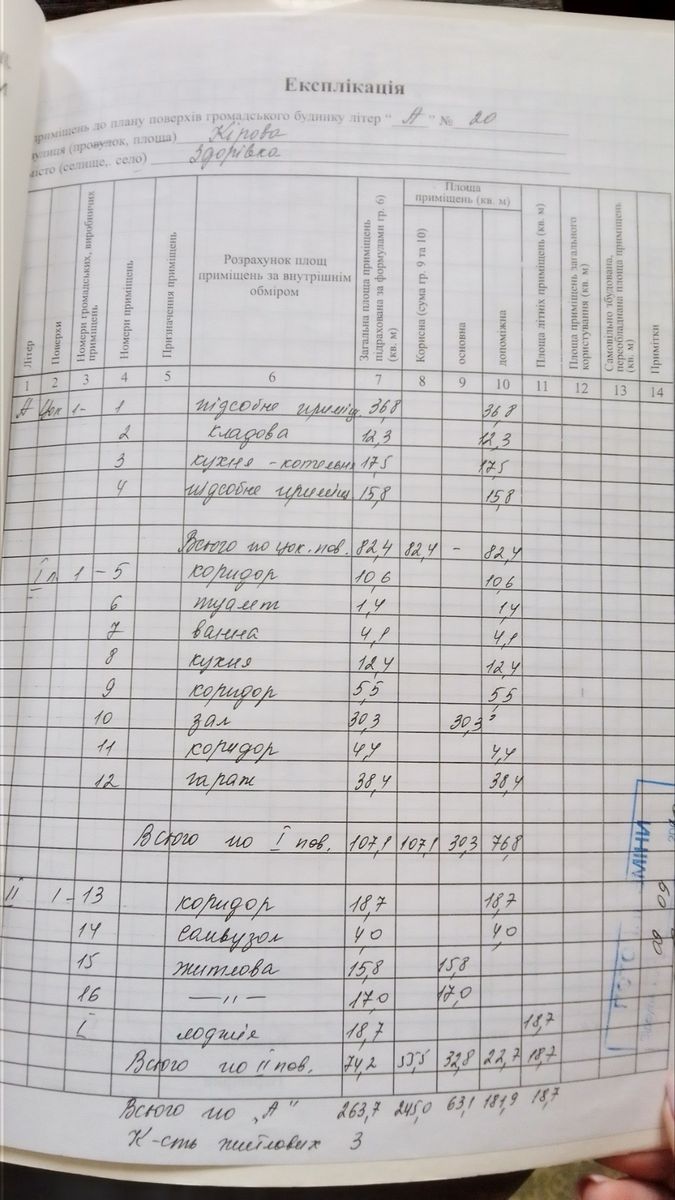 Експлікація
приміщень до плану поверхів громадського будинку літер " А " № 20
вулиця (провулок, площа) Кірова
місто (селище, село) Здорівка
Літер
Поверхи
Номери громадських, виробничих приміщень
Номери приміщень
Призначення приміщень
Розрахунок площ приміщень за внутрішнім обміром
Загальна площа приміщень підрахована за формулами гр. 6) (кв. м)
Площа приміщень (кв. м)
Корисна (сума гр. 9 та 10)
основна
допоміжна
Площа літніх приміщень (кв. м)
Площа приміщень загального користування (кв. м)
Самовільно збудована, переобладнана площа приміщень (кв. м)
Примітки
1 2 3 4 5 6 7 8 9 10 11 12 13 14
А Цок 1- 1 підсобне приміщ. 36,8 36,8
2 кладова 12,3 12,3
3 кухня - котельня 17,5 17,5
4 підсобне приміщ 15,8 15,8
Всього по цок. пов. 82,4 82,4 - 82,4
І п. 1 - 5 коридор 10,6 10,6
6 туалет 1,4 1,4
7 ванна 4,1 4,1
8 кухня 12,4 12,4
9 коридор 5,5 5,5
10 зал 30,3 30,3
11 коридор 4,4 4,4
12 гараж 38,4 38,4
Всього по І пов. 107,1 107,1 30,3 76,8
ІІ 1 - 13 коридор 18,7 18,7
14 санвузол 4,0 4,0
15 житлова 15,8 15,8
16 — " — 17,0 17,0
І лоджія 18,7 18,7
Всього по ІІ пов. 74,2 55,5 32,8 22,7 18,7
Всього по „А" 263,7 245,0 63,1 181,9 18,7
К-сть житлових 3
МІНИ